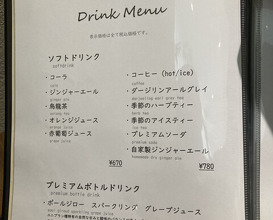 Drink Menu
表示価格は全て税込価格です。
ソフトドリンク
softdrink
・コーラ
cola
・ジンジャーエール
ginger ale
・烏龍茶
・オレンジジュース
orange juice
・赤葡萄ジュース
¥670
・コーヒー (hot/ice)
coffee
・ダージリンアールグレイ
darjeeling earl grey tea
・季節のハーブティー
herb tea
・季節のアイスティー
ice tea
・プレミアムソーダ
premium soda
・自家製ジンジャーエール
homemade dry ginger ale
¥780
プレミアムボトルドリンク
premium bottle drink
・ポールジロー スパークリング グレープジュース
paul giraud sparkling grape juice